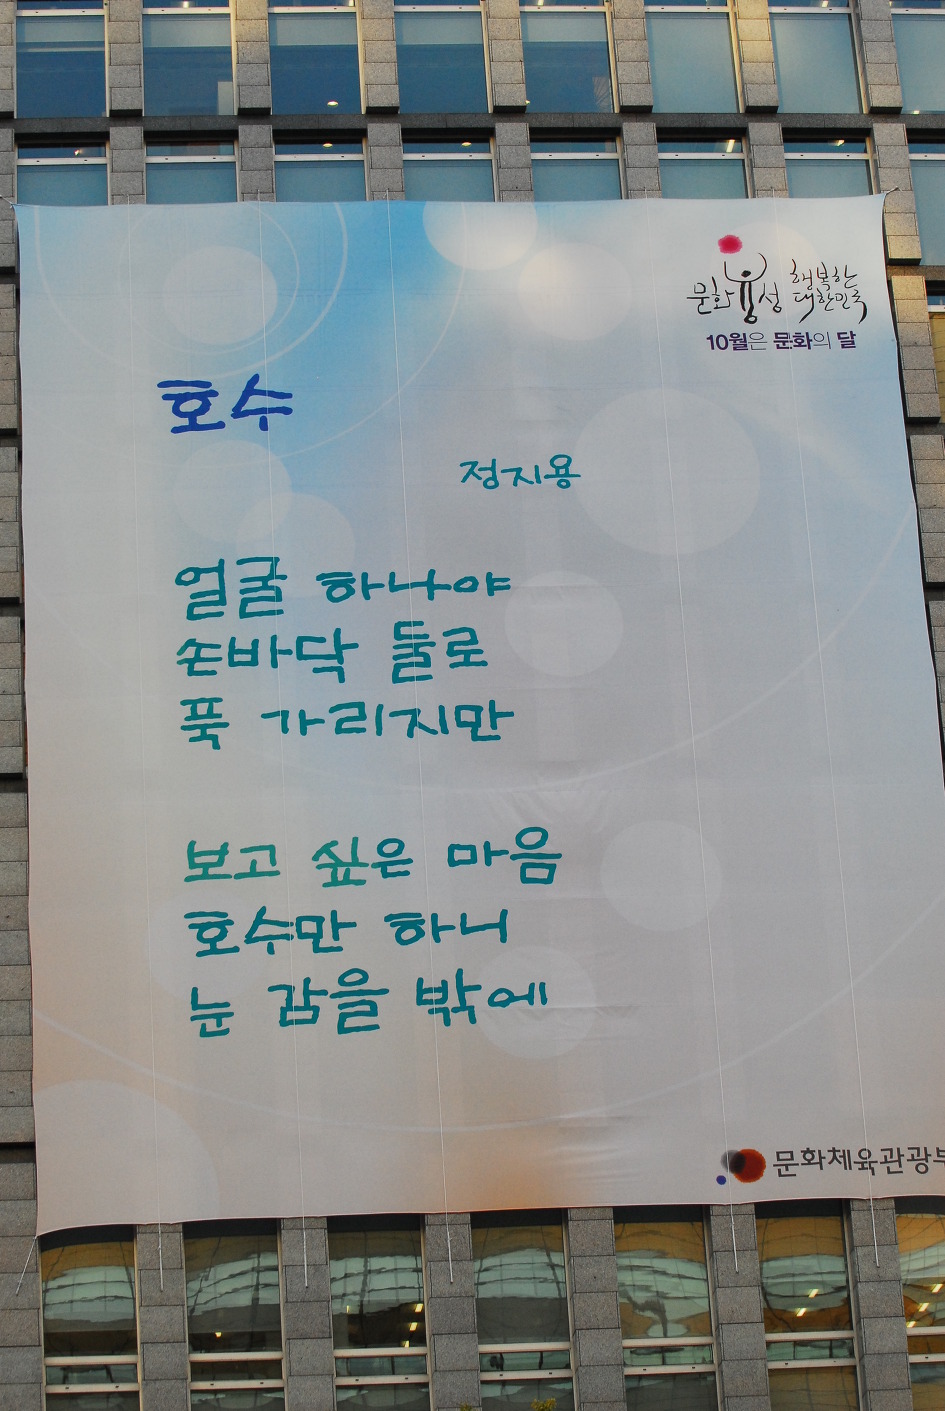 문화융성 행복한 대한민국
10월은 문화의 달
호수
정지용
얼굴 하나야
손바닥 둘로
푹 가리지만
보고 싶은 마음
호수만 하니
눈 감을 밖에
문화체육관광부